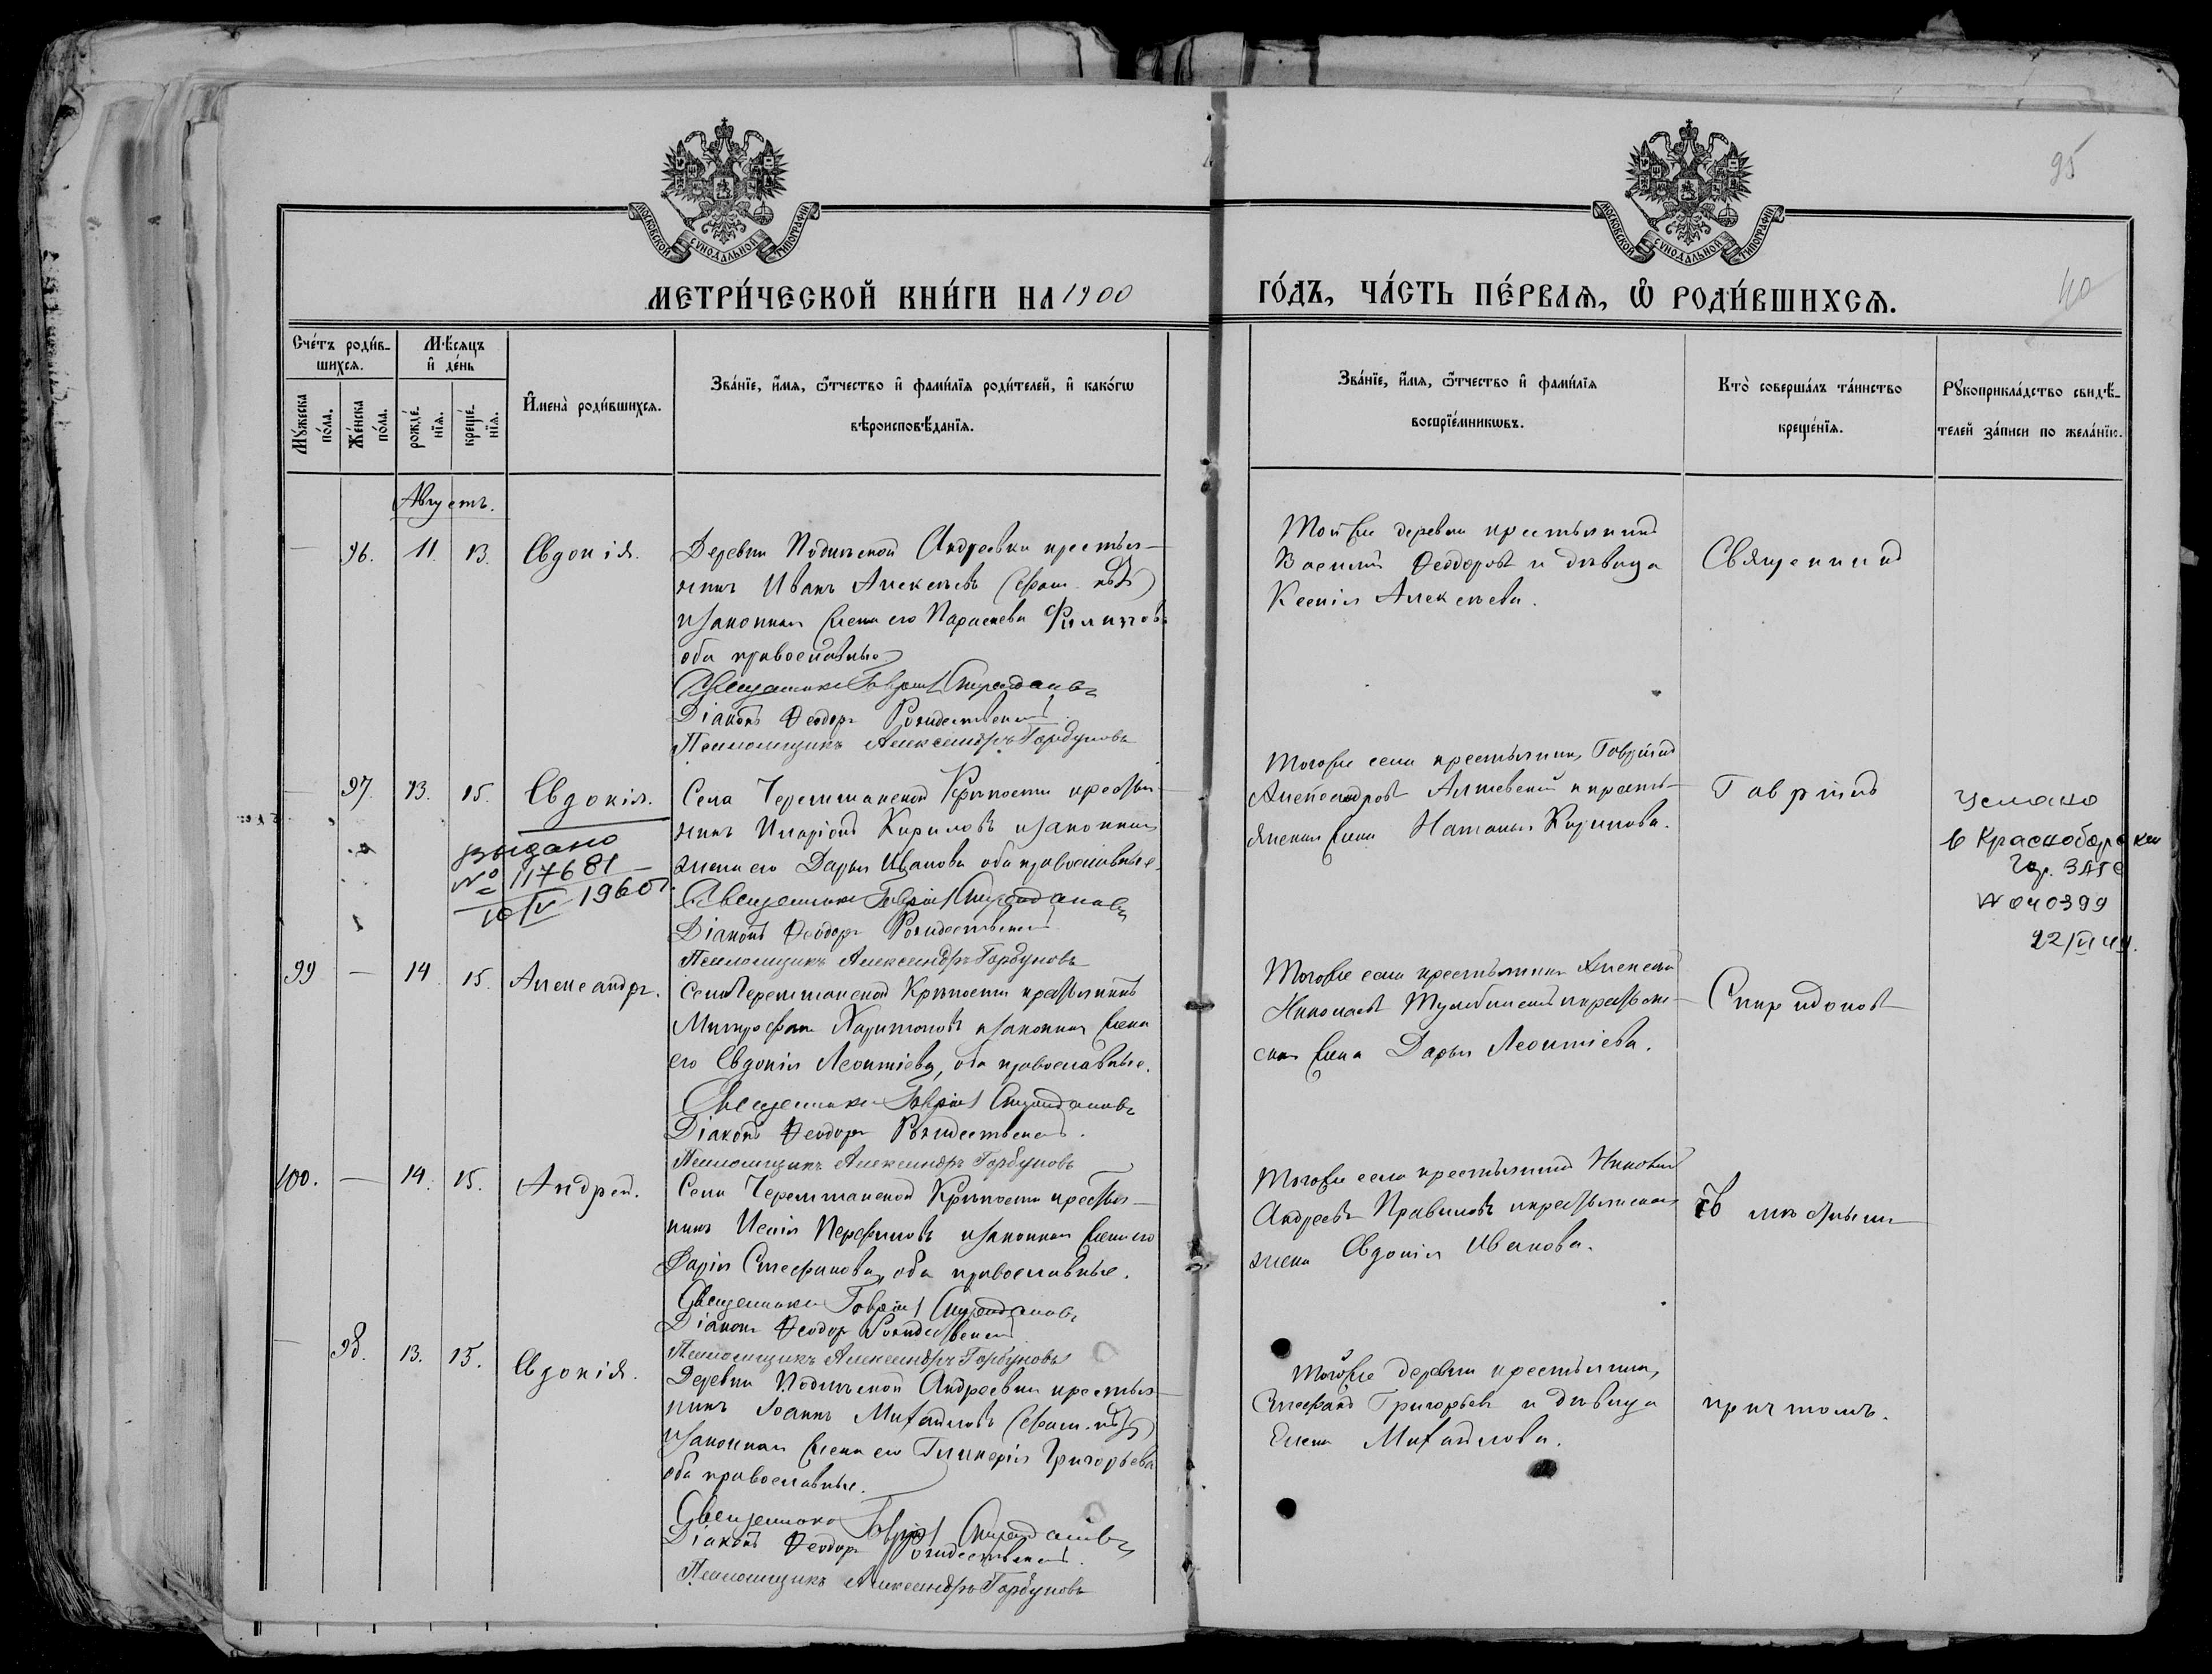 95
40
МОСКОВСКОЙ СѴНОДАЛЬНОЙ ТИПОГРАФІИ
МОСКОВСКОЙ СѴНОДАЛЬНОЙ ТИПОГРАФІИ
МЕТРИ́ЧЕСКОЙ КНИ́ГИ НА 1900
ГО́ДЪ, ЧА́СТЬ ПЕ́РВАѦ, Ѽ РОДИ́ВШИХСѦ.
Сче́тъ роди́в-
шихсѧ.
Мѣ́сѧцъ
и҆ де́нь
Мꙋ́жеска
по́ла.
Же́нска
по́ла.
рожде́-
нїѧ.
креще́-
нїѧ.
И҆мена̀ роди́вшихсѧ.
Зва́нїе, и҆́мѧ, ѻ҆́тчество и҆ фами́лїѧ роди́телей, и҆ како́гѡ
вѣроисповѣ́данїѧ.
Зва́нїе, и҆́мѧ, ѻ҆́тчество и҆ фами́лїѧ
воспрїе́мникѡвъ.
Кто̀ соверша́лъ та́инство
креще́нїѧ.
Рꙋкоприкла́дство свидѣ́-
телей за́писи по жела́нїю.
Августъ.
— 96. 11. 13. Евдокія.
Деревни Андреевки крестья-
нинъ Иванъ Алексѣевъ
и законная жена его Параскева Филипова
оба православные
Священникъ Гавріилъ Спиридоновъ
Діаконъ Ѳеодоръ Рождественскій
Псаломщикъ Александръ Горбуновъ
Той же деревни крестьянинъ
Василій Ѳеодоровъ и дѣвица
Ксенія Алексѣева.
Священникъ
— 97. 13. 15. Евдокія.
выдано
№ 117681
1960 г.
Села Черемшанской Крѣпости крестья-
нинъ Иларіонъ Кириловъ и законная
жена его Дарья Иванова оба православные.
Священникъ Гавріилъ Спиридоновъ
Діаконъ Ѳеодоръ Рождественскій
Псаломщикъ Александръ Горбуновъ
Того же села крестьянинъ Гавріилъ
Александровъ и кресть-
янская жена Наталья Кирилова.
Гавріилъ
в
ЗАГС
№ 040399
99 — 14. 15. Александръ.
Села Черемшанской Крѣпости крестьянинъ
Митрофанъ Харитоновъ и законная жена
его Евдокія Леонтіева, оба православные.
Священникъ Гавріилъ Спиридоновъ
Діаконъ Ѳеодоръ Рождественскій.
Псаломщикъ Александръ Горбуновъ
Того же села крестьянинъ Алексѣй
Николаевъ и крестьян-
ская жена Дарья Леонтіева.
Спиридоновъ
100. — 14. 15. Андрей.
Села Черемшанской Крѣпости крестья-
нинъ и законная жена его
Дарія Стефанова, оба православные.
Священникъ Гавріилъ Спиридоновъ
Діаконъ Ѳеодоръ Рождественскій
Псаломщикъ Александръ Горбуновъ
Того же села крестьянинъ
Андреевъ и крестьянская
жена Евдокія Иванова.
съ мѣстнымъ
— 98. 13. 15. Евдокія.
Деревни Андреевки крестья-
нинъ Іоаннъ Михайловъ
и законная жена его Гликерія Григорьева
оба православные.
Священникъ Гавріилъ Спиридоновъ
Діаконъ Ѳеодоръ Рождественскій.
Псаломщикъ Александръ Горбуновъ
Той же деревни крестьянинъ
Стефанъ Григорьевъ и дѣвица
Елена Михайлова.
причтомъ.